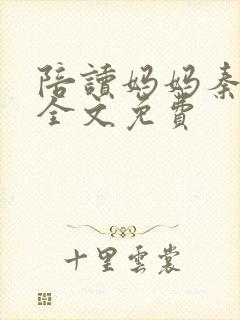 陪讀妈妈秦
全文免費
十里雲裳